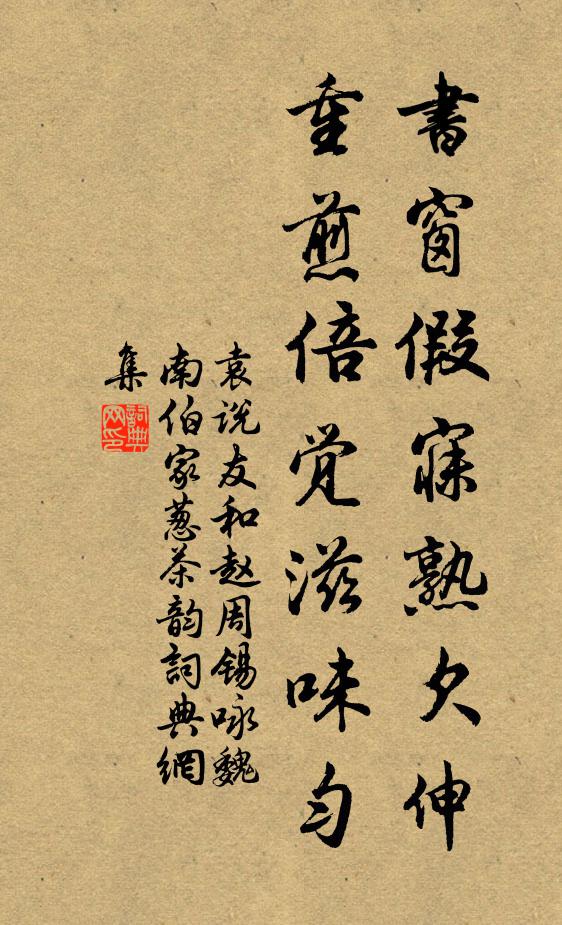 書窗假寐熟欠伸
重煎倍觉滋味匀
袁说友和赵周锡咏魏
南伯家葱茶韵詞典網
集
詞典
网印